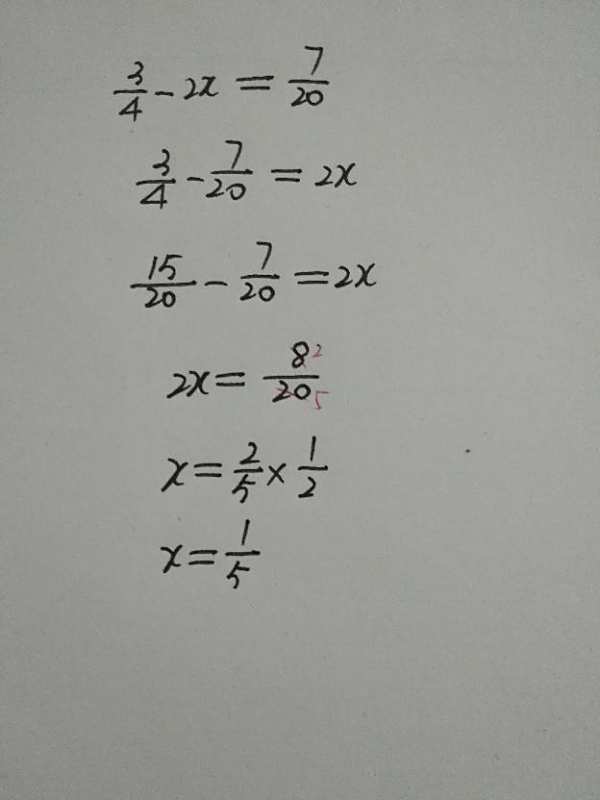 3/4 - 2x = 7/20
3/4 - 7/20 = 2x
15/20 - 7/20 = 2x
2x = 8/20 2 5
x = 2/5 × 1/2
x = 1/5